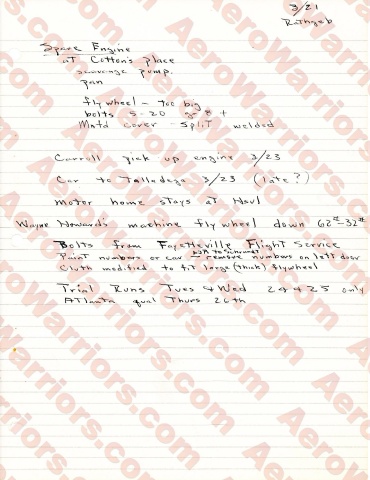 3/21
Rathgeb
Spare Engine
at Cotton's place
scavenge pump.
pan
flywheel - too big
bolts 5-20
Motd cover - split welded
Carroll pick up engine 3/23
Car to Talladega 3/23 (late?)
Motor home stays at Hsvl
Wayne Howard's machine flywheel down 62#-32#
Bolts from Fayetteville Flight Service
Paint numbers or car remove numbers on left door
Cluth modified to fit large (thick) flywheel
Trial Runs Tues & Wed 24 & 25 only
Atlanta qual Thurs 26th
AeroWarriors.com